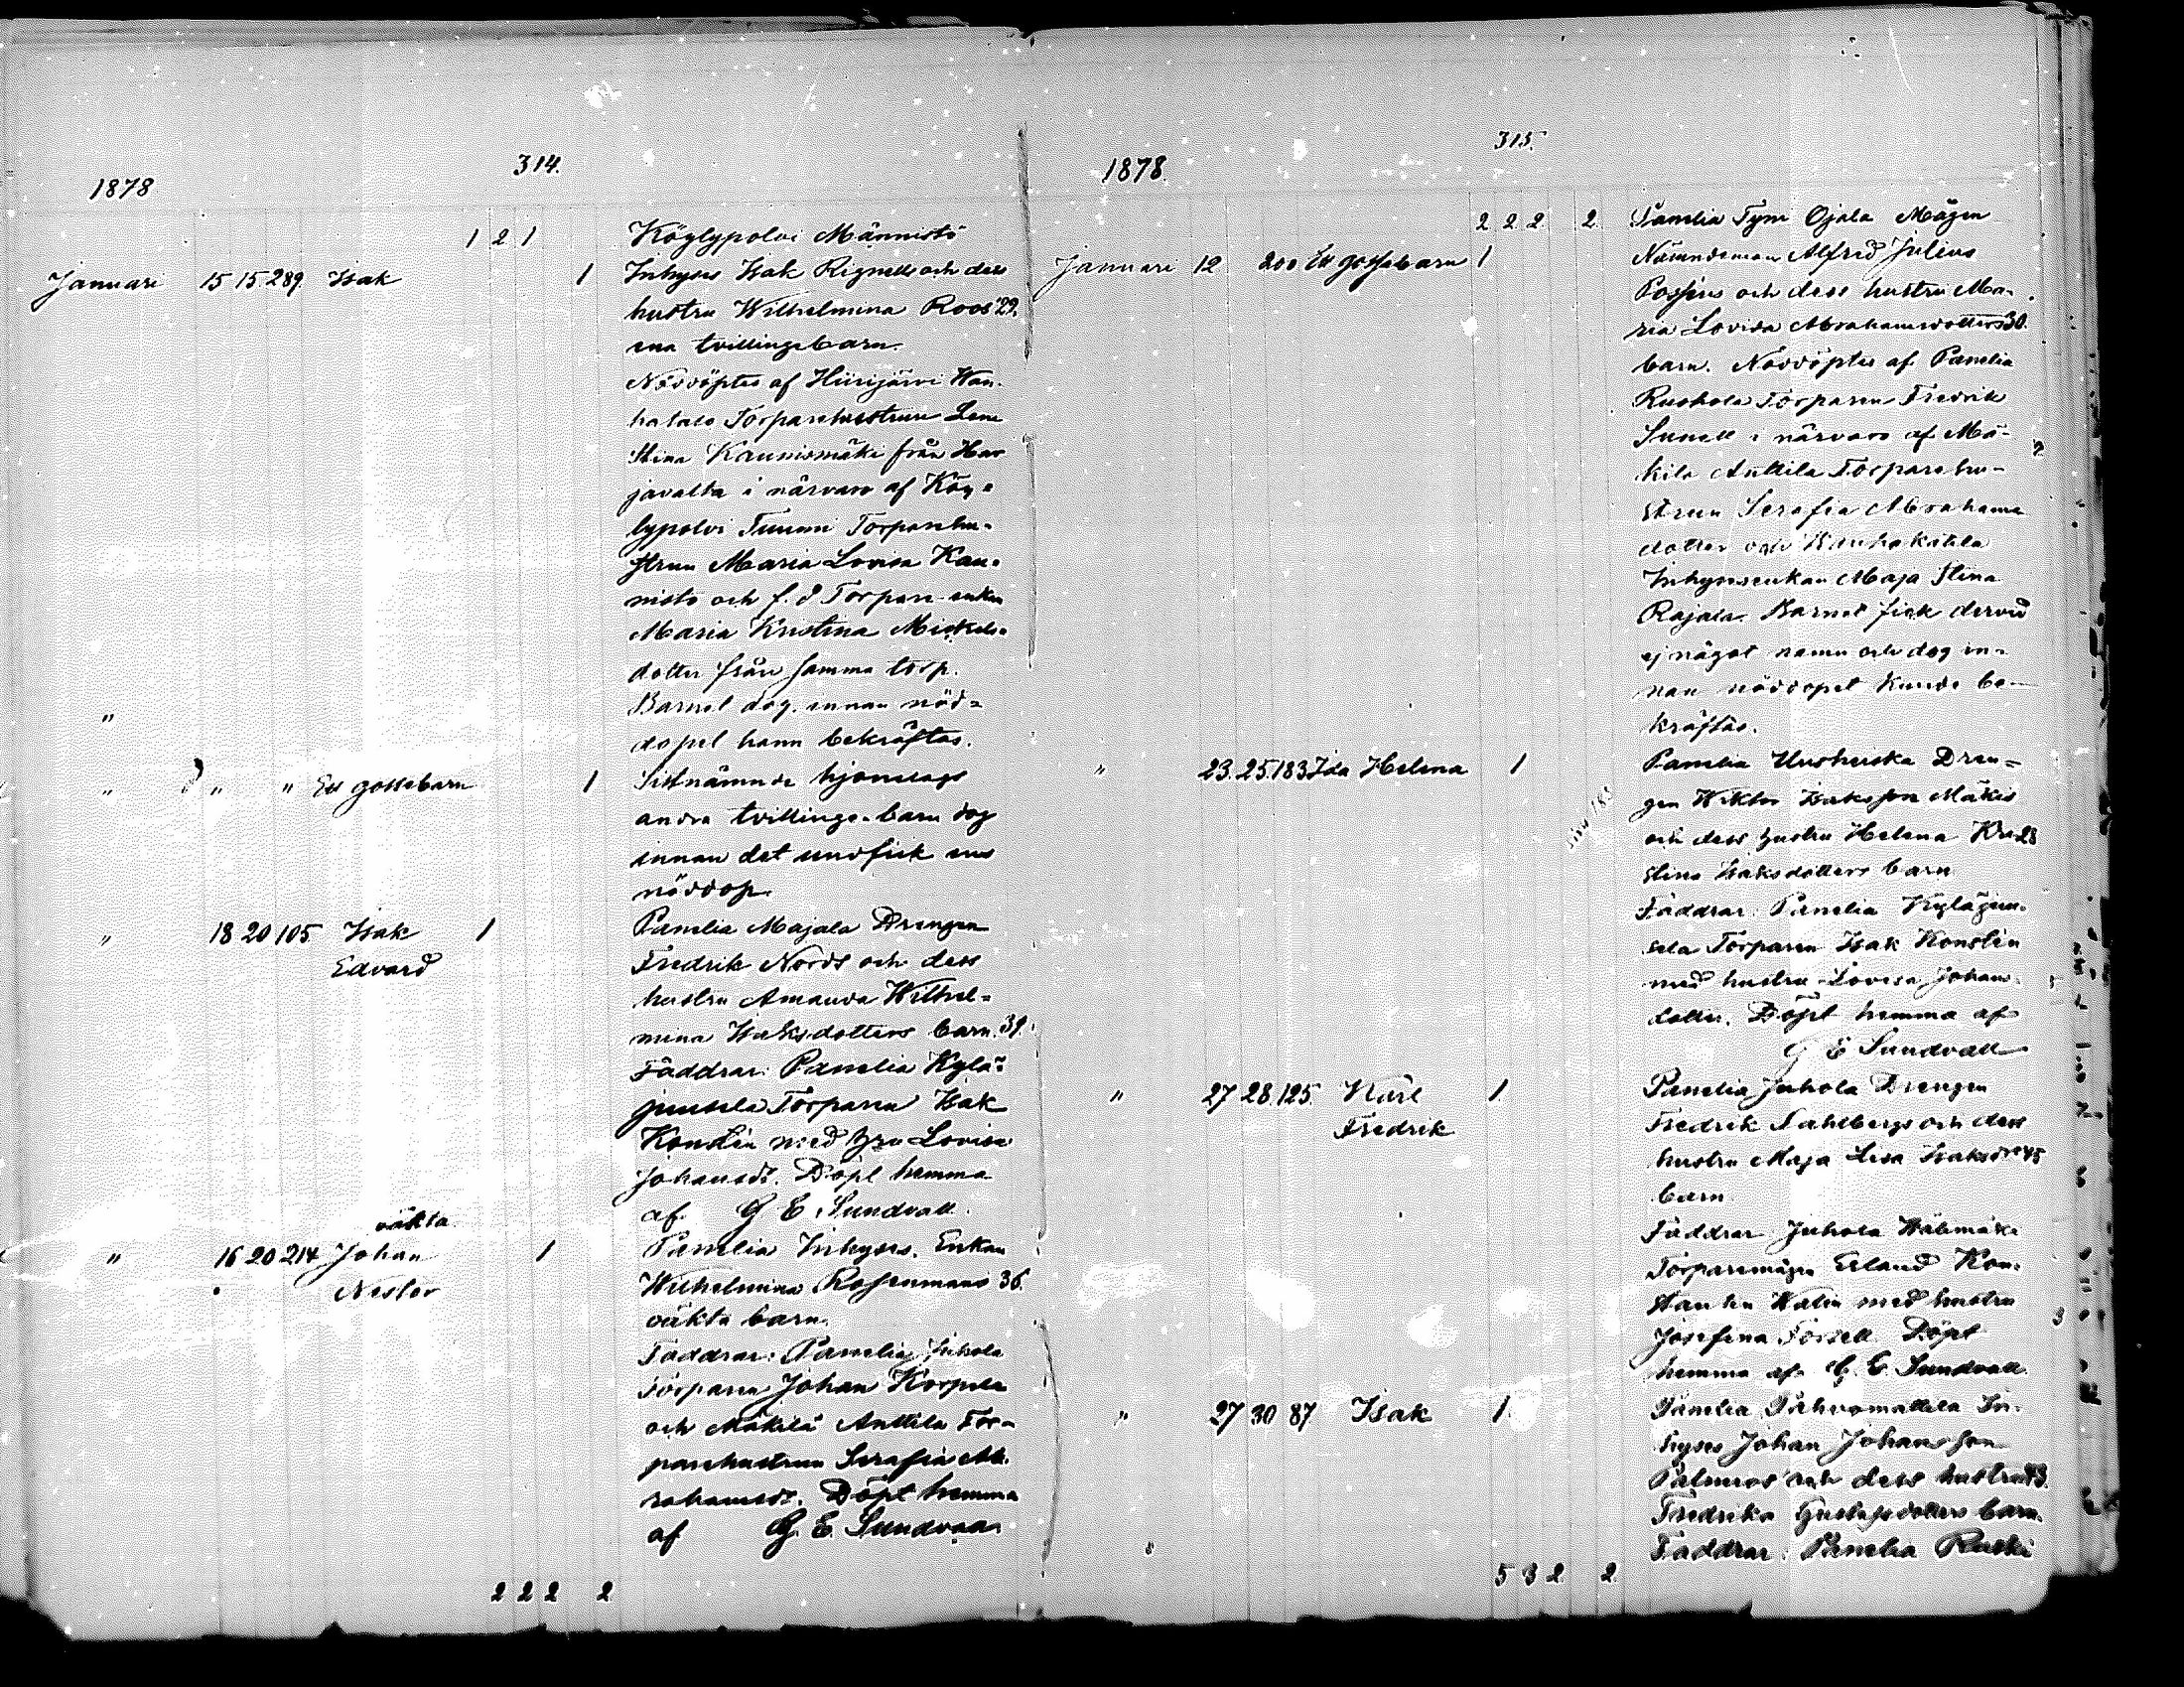 314.
1878
1 2 1 Köylypolvi Männistö
Januari 15 15 289 Isak 1 Inhyses Isak Rignells och dess
hustru Wilhelmina Roos' 29.
ena tvillingebarn.
Nöddöptes af Hiirijärvi Wan-
hatalo Torparehustrun Lena
Stina Kaunismäki från Har
javalta i närvaro af Köy-
lypolvi Tuumi Torparehu-
strun Maria Lovisa Kau-
nisto och f. d Torpare enkan
Maria Kristina Mickels-
dotter från samma torp.
" Barnet dog innan nöd-
dopet hann bekräftas.
" " " Ett gossebarn 1 Sistnämnde hjonelags
andra tvillinge-barn dog
innan det undfick ens
nöddop.
" 18 20 105 Isak 1 Panelia Majala Drengen
Edvard Fredrik Nords och dess
hustru Amanda Wilhel-
mina Isaksdotters barn. 39.
Faddrar: Panelia Kylä-
junsela Torparen Isak
Konstin med hru Lovisa
Johansdr. Döpt hemma
af G E Sundvall.
oäkta
" 16 20 214 Johan 1 Panelia Inhyses Enkan
Nestor Wilhelmina Rosenmans 36.
oäkta barn.
Faddrar: Panelia Juhola
Torparen Johan Korpela
och Mäkilä Anttila Tor-
parehustrun Serafia Ab-
rahamsdr. Döpt hemma
af G. E. Sundvall
2 2 2 2
315.
1878.
2 2 2 2 Panelia Tyni Ojala Mågen
Januari 12 200 Ett gossebarn 1 Nämndeman Alfred Julius
Possius och dess hustru Ma-
ria Lovisa Abrahamsdotters 30.
barn. Nöddöptes af Panelia
Ruohola Torparen Fredrik
Sunell i närvaro af Mä-
kilä Anttila Torparehu-
strun Serafia Abrahams
dotter och Kauhakätilä
Inhysesenkan Maja Stina
Rajala. Barnet fick dervid
ej något namn och dog in-
nan nöddopet kunde be-
kräftas.
" 23. 25. 183 Ida Helena 1 Panelia Uusheiska Dren-
gen Wiktor Isaksson Mäkis
och dess hustru Helena Kri 28
stina Isaksdotters barn
Faddrar: Panelia Kyläjun-
sela Torparen Isak Konstin
med hustru Lovisa Johans
dotter. Döpt hemma af
G E Sundvall
" 27 28. 125. Karl 1. Panelia Juhola Drengen
Fredrik Fredrik Sahlbergs och dess
hustru Maja Lisa Isaksdrs 45
barn
Faddrar Juhola
Torparemågen Erland Kon-
stantin Walin med hustru
Josefina Forsell. Döpt
hemma af G. E. Sundvall
" 27 30 87 Isak 1. Panelia Pahvomattila In-
hyses Johan Johansson
Palmros och dess hustru 43.
Fredrika Gustafsdotters barn.
Faddrar: Panelia Ruski
5 3 2 2.